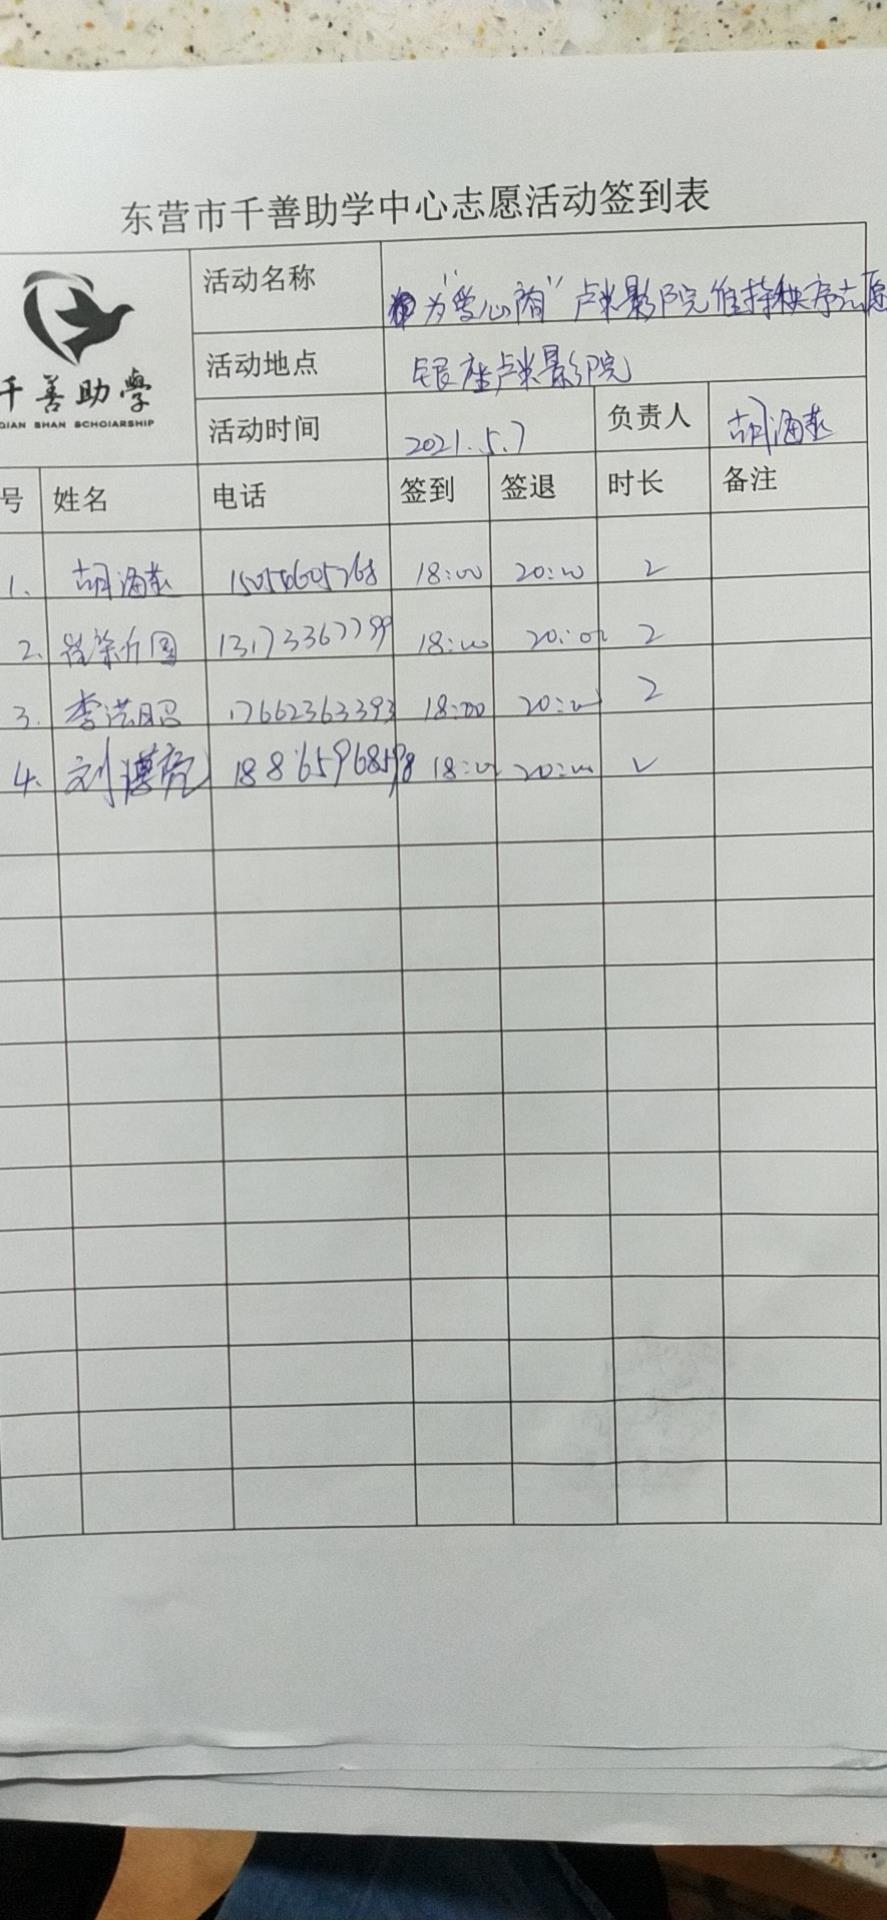 东营市千善助学中心志愿活动签到表
千善助學
QIAN SHAN SCHOIARSHIP
活动名称 为"爱心商"卢米影院维持秩序志愿
活动地点 银座卢米影院
活动时间 2021.5.7 负责人 胡海燕
号 姓名 电话 签到 签退 时长 备注
1. 胡海燕 15054605768 18:00 20:00 2
2. 13173367799 18:00 20:00 2
3. 李洪昭 17662363393 18:00 20:00 2
4. 刘漠亮 18865968598 18:00 20:00 2